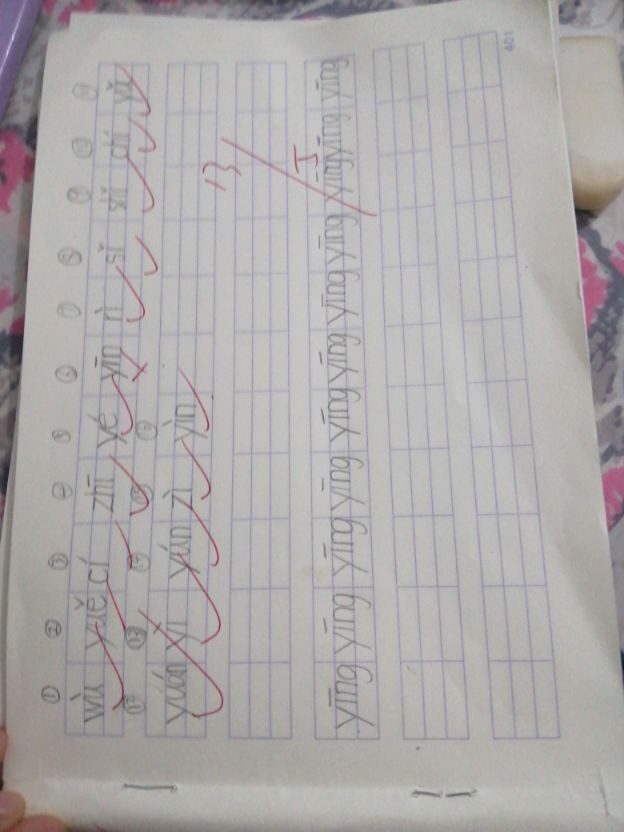 ① ② ③ ④ ⑤ ⑥ ⑦ ⑧
wù yuě cí zhī yé yīn rì sǐ
⑫ ⑬ ⑭ ⑮ ⑯
yuán yì yún zì yìn
13
yīng yīng yīng yīng yīng yīng yīng yīng yīng yīng yīng
401